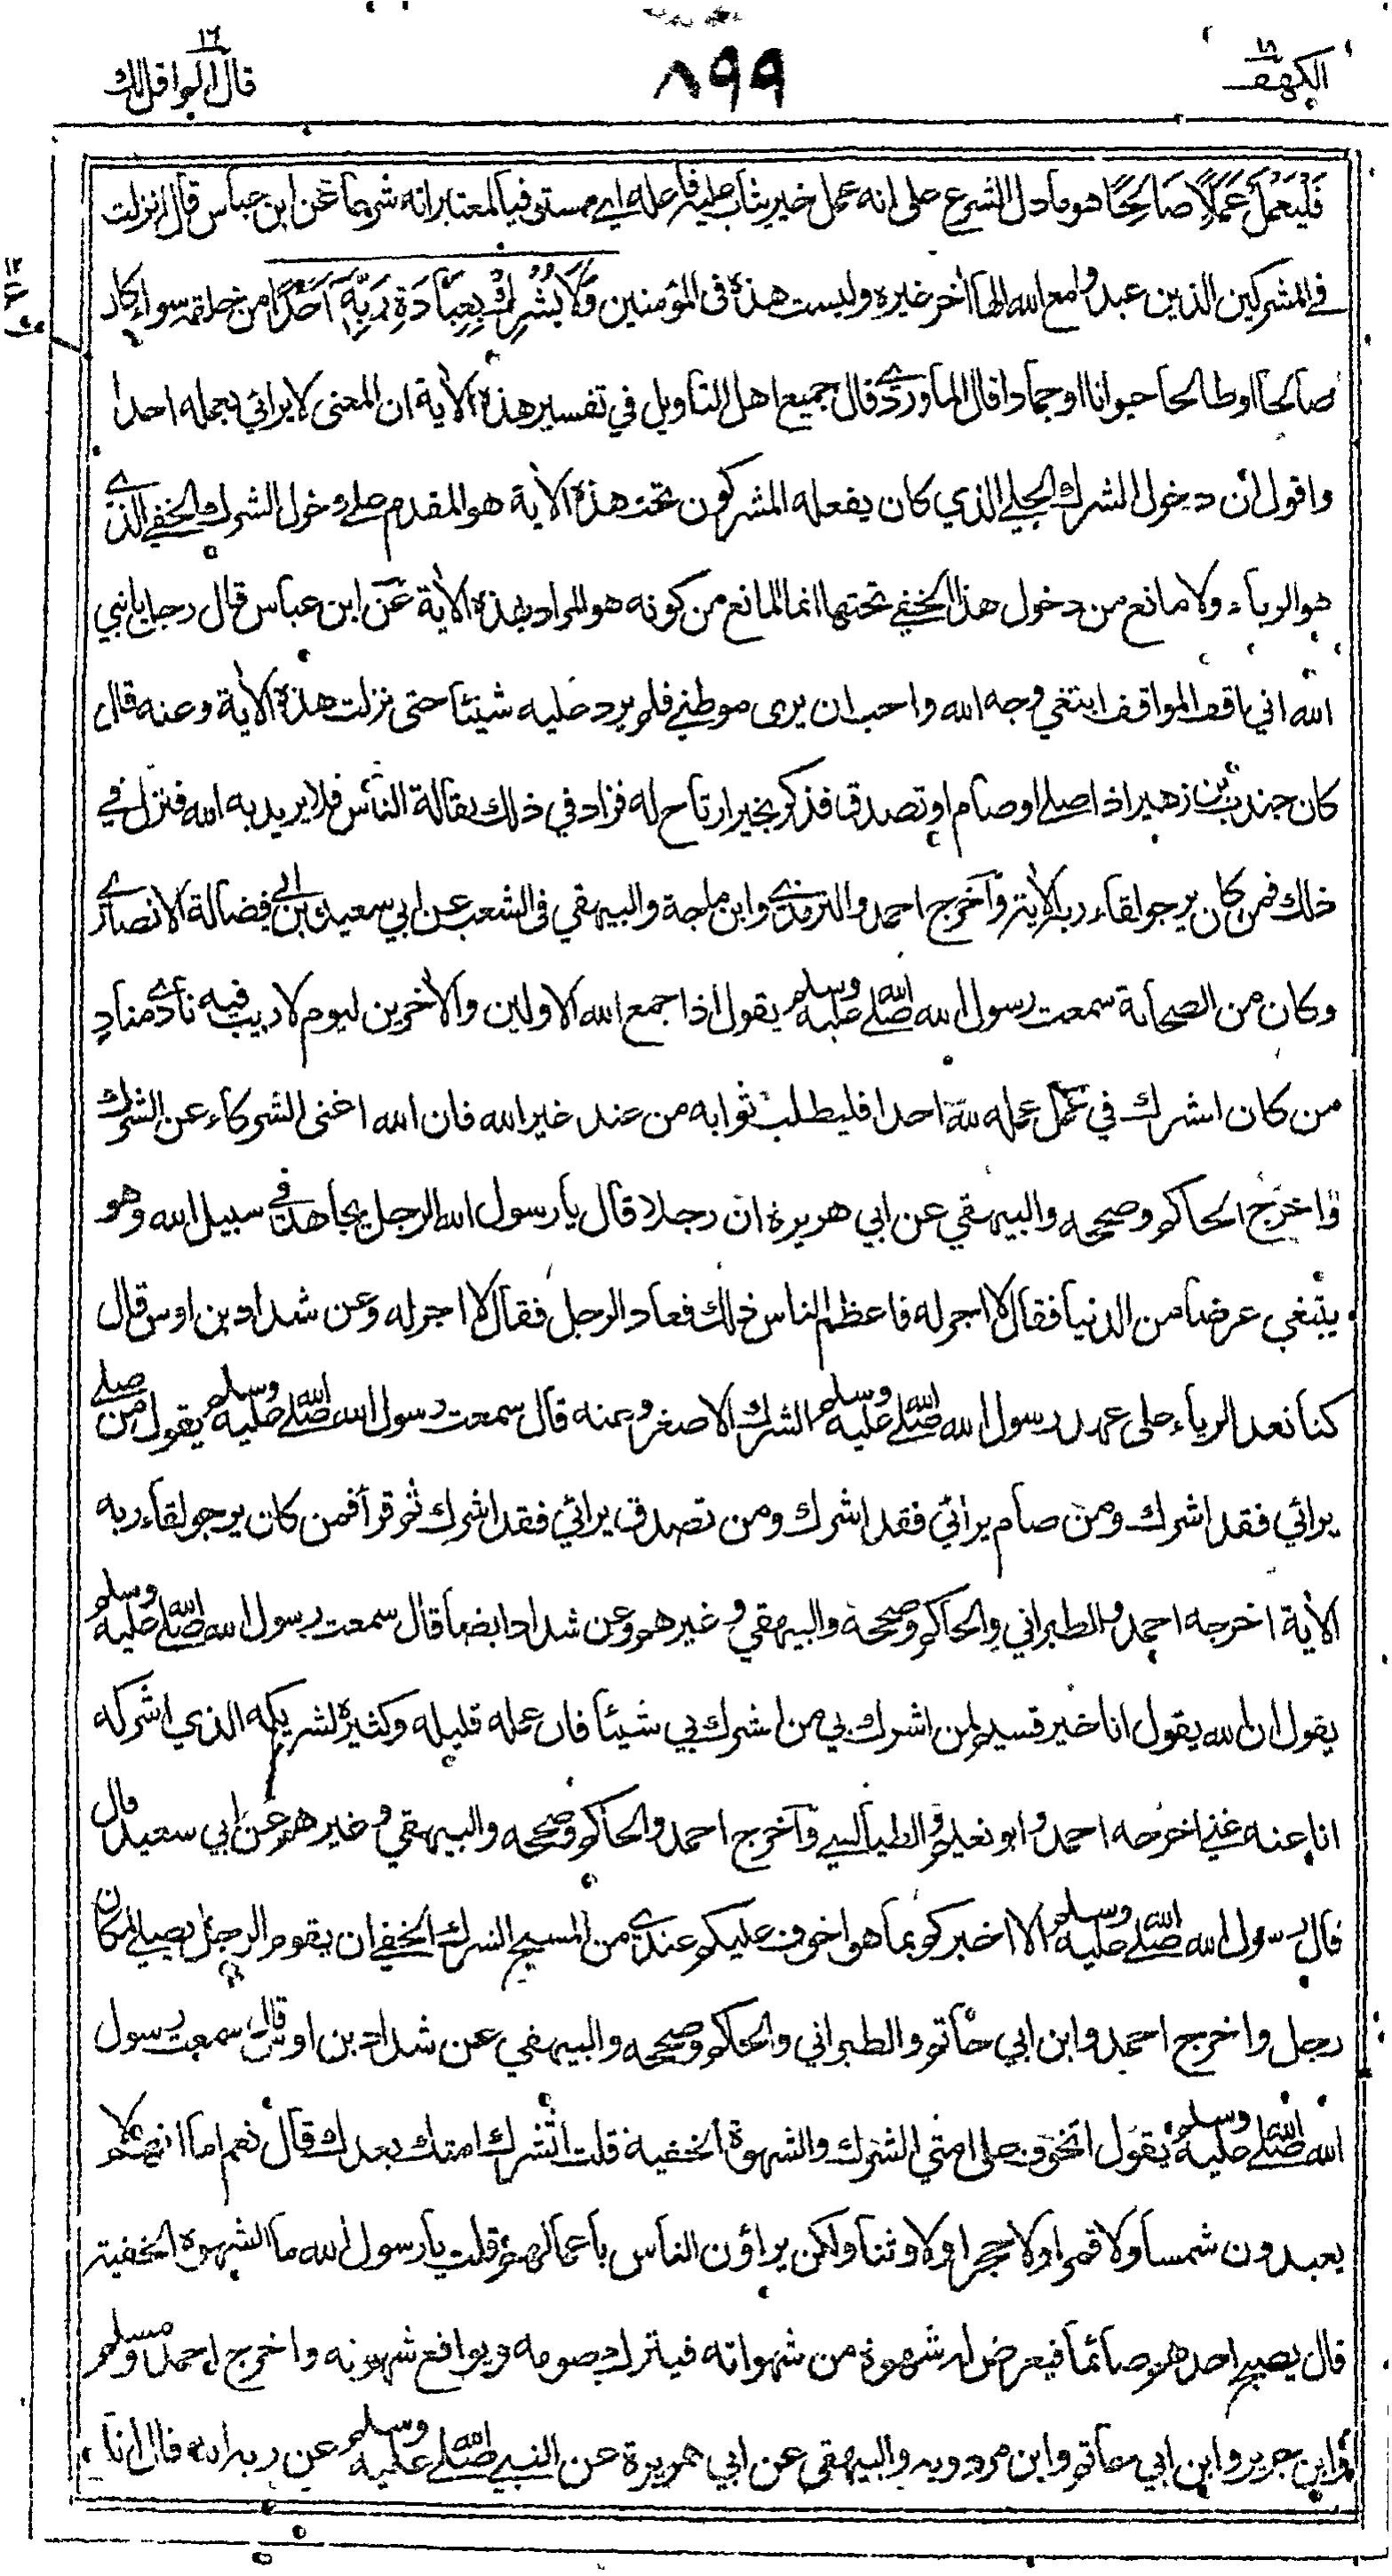 الكهف ١٨
٨٩٩
قال الم اقل لك ١٦
فَلْيَعْمَلْ عَمَلًا صَالِحًا هو ما دل الشرع على انه عمل خير يثاب عليه فاعله اي مستوفيا لمعتبراته شرعا عن ابن عباس قال نزلت
في المشركين الذين عبدوا مع الله الها اخر غيره وليست هذه في المؤمنين وَلَا يُشْرِكْ بِعِبَادَةِ رَبِّهِ أَحَدًا من خلقه سواء كان
صالحا او طالحا حيوانا او جمادا قال الماوردي قال جميع اهل التاويل في تفسير هذه الاية ان المعنى لا يرائي بعمله احدا
واقول ان دخول الشرك الجلي الذي كان يفعله المشركون تحت هذه الاية هو المقدم على دخول الشرك الخفي الذي
هو الرياء ولا مانع من دخول هذا الخفي تحتها انما المانع من كونه هو المراد بهذه الاية عن ابن عباس قال رجل يا نبي
الله اني اقف المواقف ابتغي وجه الله واحب ان يرى موطني فلم يرد عليه شيئا حتى نزلت هذه الاية وعنه قال
كان جندب بن زهير اذا صلى او صام او تصدق فذكر بخير ارتاح له فزاد في ذلك لقالة الناس فلا يريد به الله فنزل في
ذلك فمن كان يرجو لقاء ربه الاية وأخرج احمد والترمذي وابن ماجة والبيهقي في الشعب عن ابي سعيد بن ابي فضالة الانصاري
وكان من الصحابة سمعت رسول الله صلى الله عليه وسلم يقول اذا جمع الله الاولين والاخرين ليوم لا ريب فيه نادى مناد
من كان اشرك في عمل عمله لله احدا فليطلب ثوابه من عند غير الله فان الله اغنى الشركاء عن الشرك
واخرج الحاكم وصححه والبيهقي عن ابي هريرة ان رجلا قال يا رسول الله الرجل يجاهد في سبيل الله وهو
يبتغي عرضا من الدنيا فقال لا اجر له فاعظم الناس ذلك فعاد الرجل فقال لا اجر له وعن شداد بن اوس قال
كنا نعد الرياء على عهد رسول الله صلى الله عليه وسلم الشرك الاصغر وعنه قال سمعت رسول الله صلى الله عليه وسلم يقول من صلى
يرائي فقد اشرك ومن صام يرائي فقد اشرك ومن تصدق يرائي فقد اشرك ثم قرأ فمن كان يرجو لقاء ربه
الاية اخرجه احمد والطبراني والحاكم وصححه والبيهقي وغيرهم وعن شداد ايضا قال سمعت رسول الله صلى الله عليه وسلم
يقول ان الله يقول انا خير قسيم لمن اشرك بي من اشرك بي شيئا فان عمله قليله وكثيره لشريكه الذي اشركه
انا عنه غني اخرجه احمد وابو نعيم والطيالسي وآخرج احمد والحاكم وصححه والبيهقي وغيرهم عن ابي سعيد قال
قال رسول الله صلى الله عليه وسلم الا اخبركم بما هو اخوف عليكم عندي من المسيح الشرك الخفي ان يقوم الرجل يصلي لمكان
رجل واخرج احمد وابن ابي حاتم والطبراني والحاكم وصححه والبيهقي عن شداد بن اوس قال سمعت رسول
الله صلى الله عليه وسلم يقول اتخوف على امتي الشرك والشهوة الخفية قلت اتشرك امتك بعدك قال نعم اما انهم لا
يعبدون شمسا ولا قمرا ولا حجرا ولا وثنا ولكن يراؤن الناس باعمالهم قلت يا رسول الله ما الشهوة الخفية
قال يصبح احدهم صائما فيعرض له شهوة من شهواته فيترك صومه ويواقع شهوته واخرج احمد ومسلم
وابن جرير وابن ابي حاتم وابن مردويه والبيهقي عن ابي هريرة عن النبي صلى الله عليه وسلم عن ربه انه قال انا